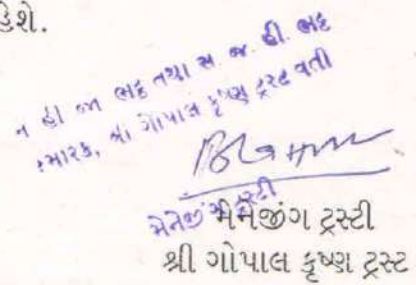 હેશે.
ન હી ભા ભટ્ટ તથા સ. જ. હી. ભટ્ટ
સ્મારક, શ્રી ગોપાલ કૃષ્ણ ટ્રસ્ટ વતી
મેનેજીંગ ટ્રસ્ટી
મેનેજીંગ ટ્રસ્ટી
શ્રી ગોપાલ કૃષ્ણ ટ્રસ્ટ